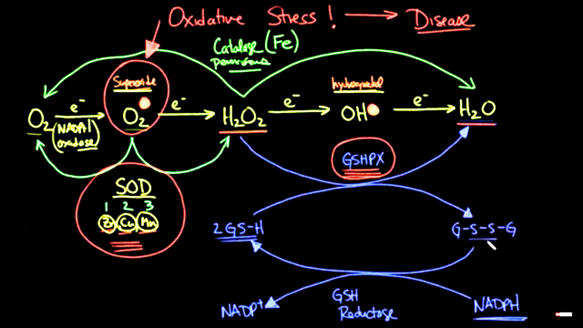 Oxidative Stress! → Disease
Catalase (Fe)
peroxisomes
Superoxide
hydroxyradical
O₂ e⁻ O₂• e⁻ H₂O₂ e⁻ OH• e⁻ H₂O
(NADPH
oxidase)
GSHPX
SOD
1 2 3
Zn Cu Mn
2GS-H G-S-S-G
NADP⁺ GSH NADPH
Reductase